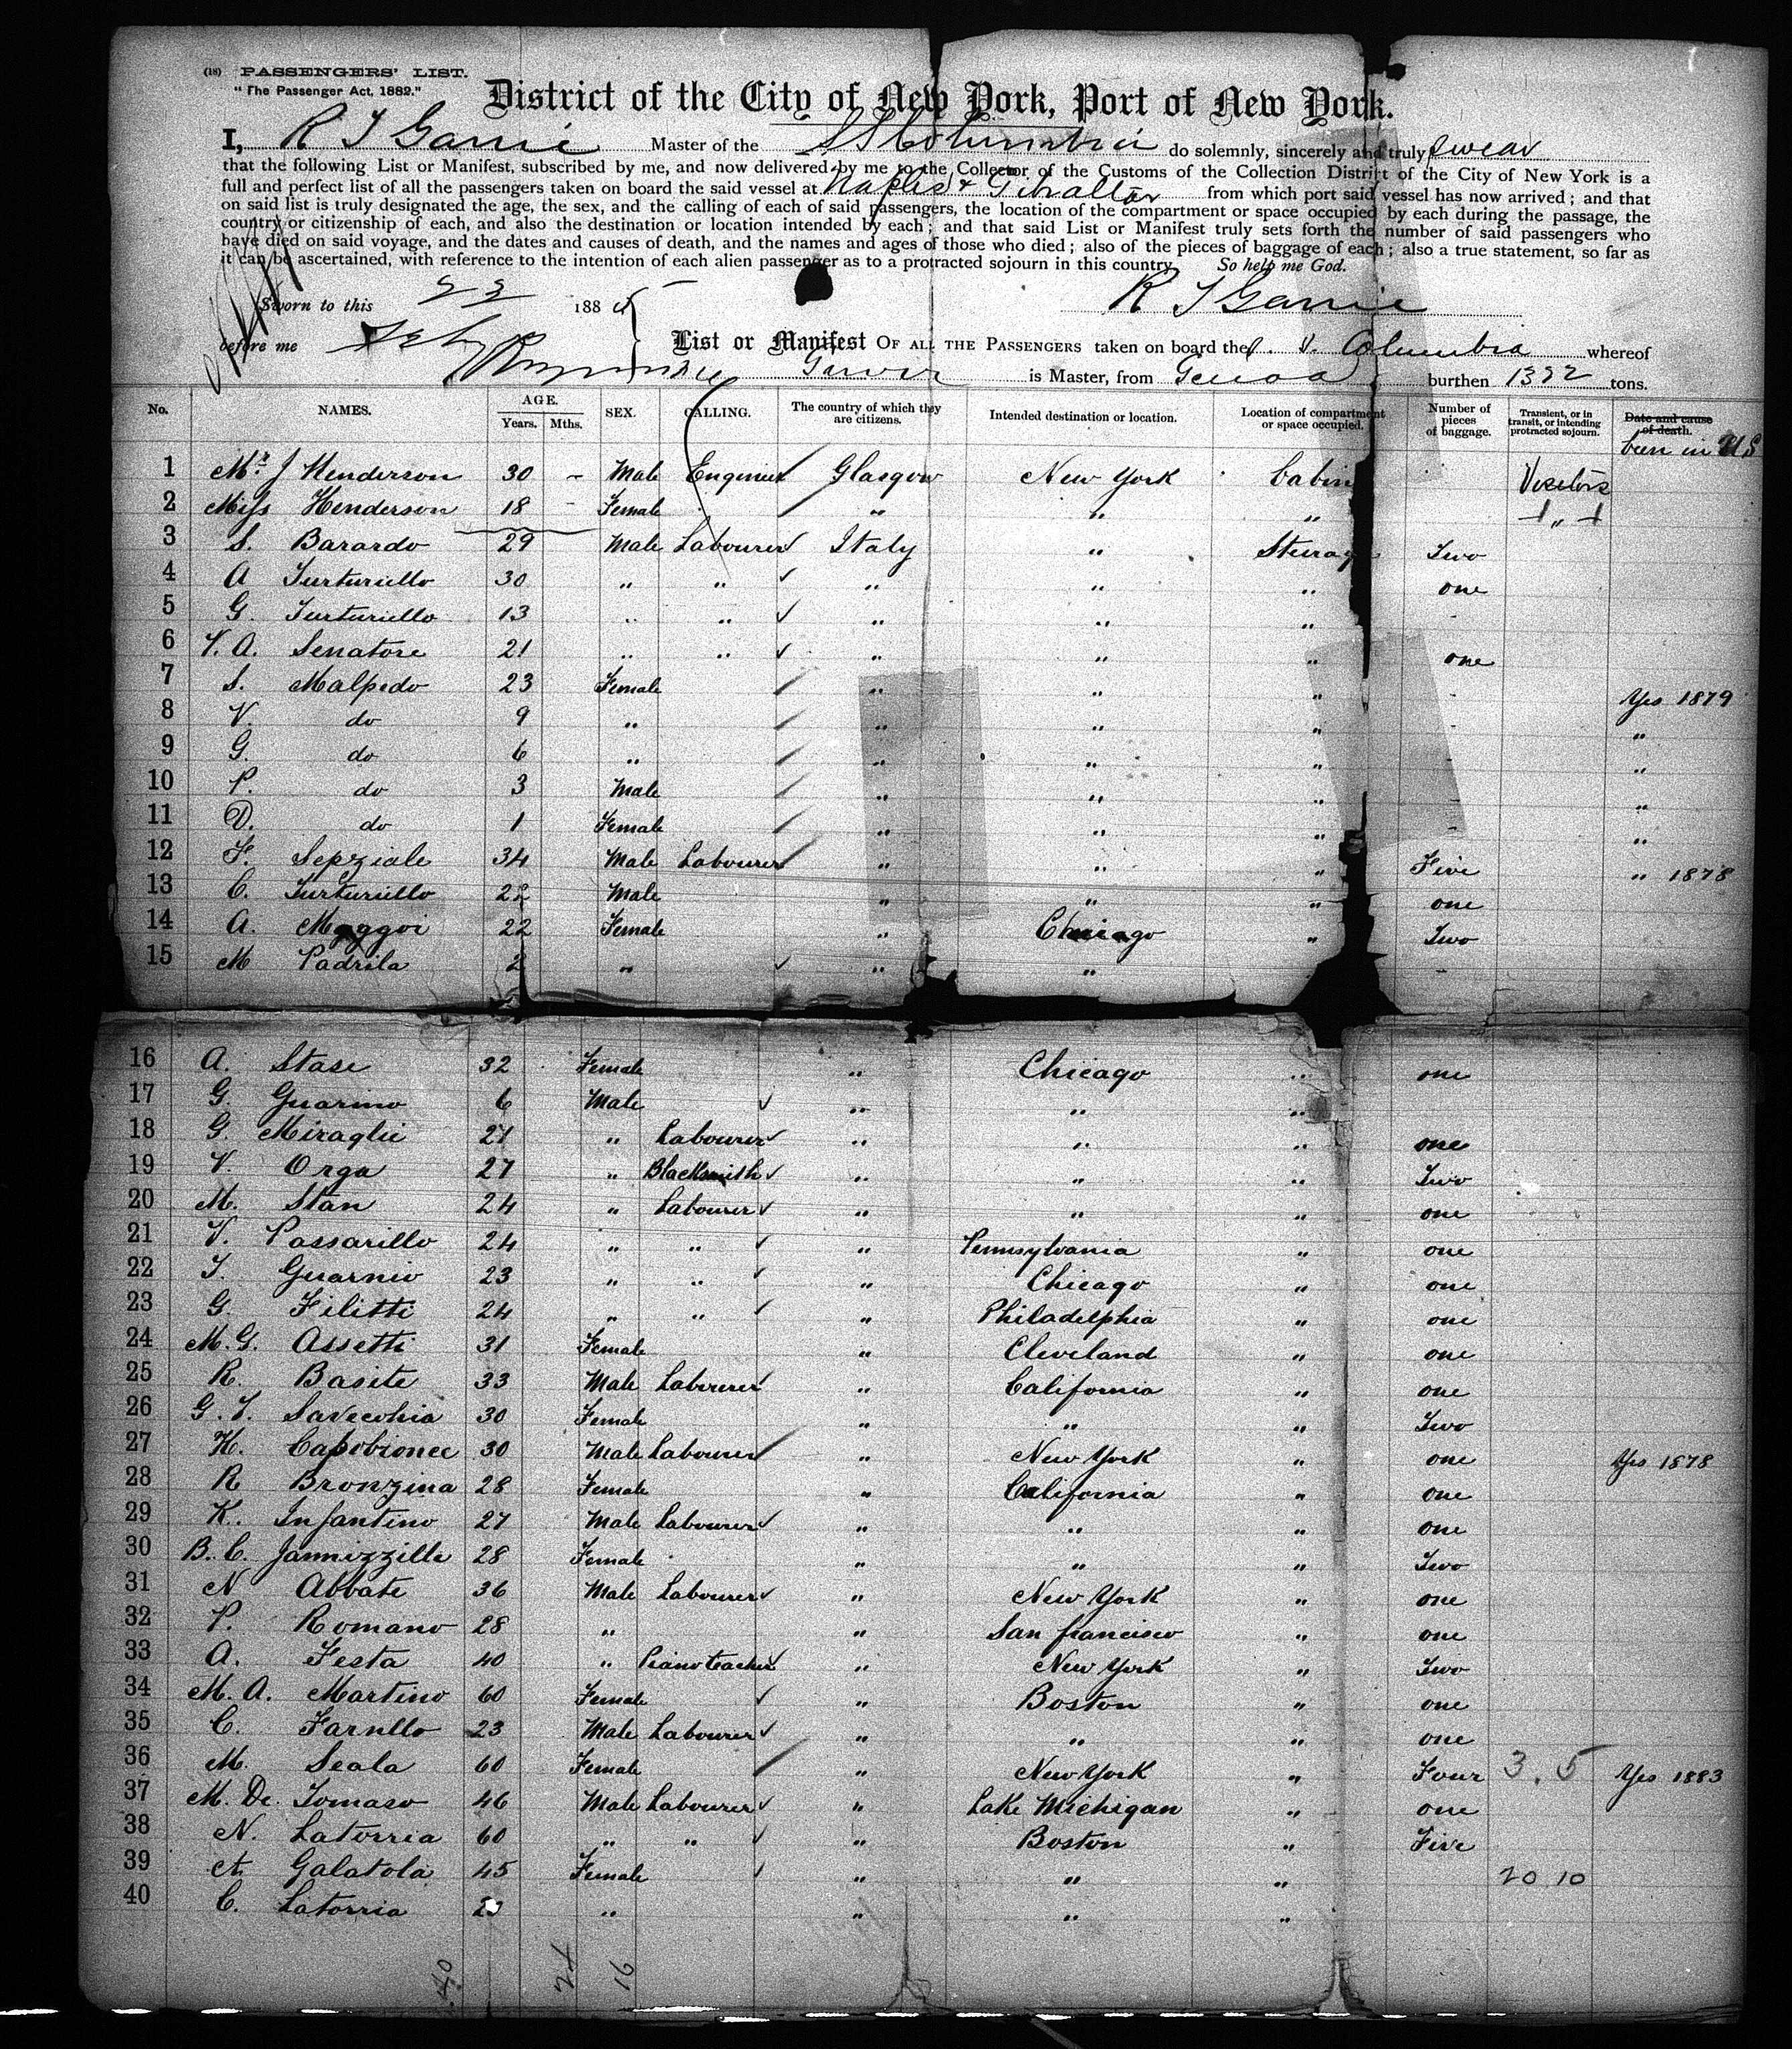 (18) PASSENGERS' LIST.
"The Passenger Act, 1882."
District of the City of New York, Port of New York.
I, R J Garrie Master of the SS Columbia do solemnly, sincerely and truly swear
that the following List or Manifest, subscribed by me, and now delivered by me to the Collector of the Customs of the Collection District of the City of New York is a
full and perfect list of all the passengers taken on board the said vessel at Naples & Gibraltar from which port said vessel has now arrived; and that
on said list is truly designated the age, the sex, and the calling of each of said passengers, the location of the compartment or space occupied by each during the passage, the
country or citizenship of each, and also the destination or location intended by each; and that said List or Manifest truly sets forth the number of said passengers who
have died on said voyage, and the dates and causes of death, and the names and ages of those who died; also of the pieces of baggage of each; also a true statement, so far as
it can be ascertained, with reference to the intention of each alien passenger as to a protracted sojourn in this country. So help me God.
Sworn to this 188 R J Garrie
before me
List or Manifest OF ALL THE PASSENGERS taken on board the S. S. Columbia whereof
is Master, from Genoa burthen tons.
No. NAMES. AGE. Years. Mths. SEX. CALLING. The country of which they are citizens. Intended destination or location. Location of compartment or space occupied. Number of pieces of baggage. Transient, or in transit, or intending protracted sojourn. Date and cause of death. been in US
1 Mr J Henderson 30 - Male Engineer Glasgow New York Cabin Visitors
2 Miss Henderson 18 - Female " " " "
3 S. Barardo 29 Male Labourer Italy " Steerage Two
4 A Turturiello 30 " " " " " one
5 G. Turturiello 13 " " " " " -
6 V. A. Senatore 21 " " " " " one
7 S. Malpedo 23 Female " " " - Yes 1879
8 V. do 9 " " " " - "
9 G. do 6 " " " " "
10 P. do 3 Male " " " - "
11 D. do 1 Female " " " - "
12 F. Sepziale 34 Male Labourer " " " Five " 1878
13 C. Turturiello 22 Male " " " one
14 A. Maggoi 22 Female " Chicago " Two
15 M Padrila 2 " " " " -
16 A. Stase 32 Female " Chicago " one
17 G. Guarino 6 Male " " "
18 G. Miraglie 27 " Labourer " " " one
19 V. Orga 27 " Blacksmith " " " Two
20 M. Stan 24 " Labourer " " " one
21 V. Passarillo 24 " " " Pennsylvania " one
22 T. Guarnio 23 " " " Chicago " one
23 G. Filitti 24 " " " Philadelphia " one
24 M. G. Assetti 31 Female " Cleveland " one
25 R. Basite 33 Male Laborerer " California " one
26 G. T. Savecohia 30 Female " " " Two
27 H. Capobionee 30 Male Labourer " New York " one Yes 1878
28 R Bronzina 28 Female " California " one
29 K. Infantino 27 Male Labourer " " " one
30 B. C. Jannizzille 28 Female " " " Two
31 N Abbate 36 Male Labourer " New York " one
32 P. Romano 28 " " San francisco " one
33 A. Festa 40 " Piano teacher " New York " Two
34 M. A. Martino 60 Female " Boston " one
35 C. Farullo 23 Male Labourer " " " one
36 M. Seala 60 Female " New York " Four 3. 5 Yes 1883
37 M. De. Tomaso 46 Male Labourer " Lake Michigan " one
38 N. Latorria 60 " " " Boston " Five
39 A. Galatola 45 Female " " " 20 10
40 C. Latorria " " " "
40 24 16